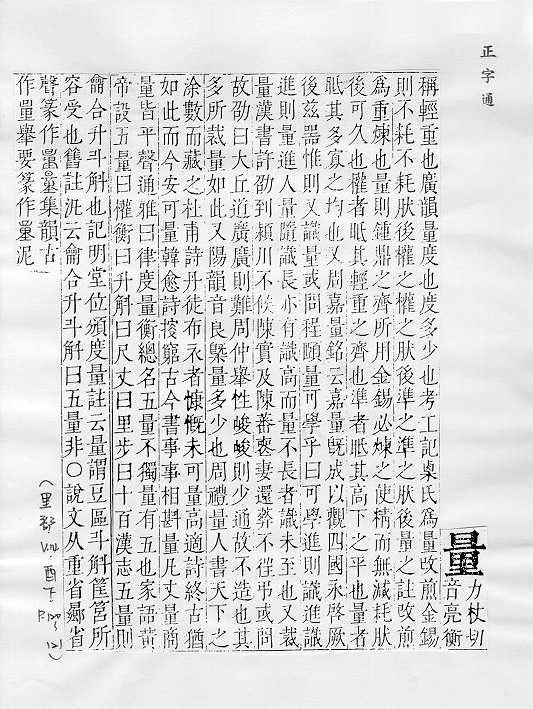 正字通
量
力杖切
音亮衡
稱輕重也廣韻量度也度多少也考工記㮚氏爲量改煎金錫
則不耗不耗然後權之權之然後準之準之然後量之註改煎
爲重煉也量則鍾鼎之齊所用金錫必煉之使精而無減耗然
後可久也權者眡其輕重之齊也準者眡其高下之平也量者
眡其多寡之均也又周嘉量銘云嘉量旣成以觀四國永啓厥
後茲器惟則又識量或問程頤量可學乎曰可學進則識進識
進則量進人量隨識長亦有識高而量不長者識未至也又裁
量漢書許劭到潁川不候陳寔及陳蕃喪妻還葬不徃弔或問
故劭曰大丘道廣廣則難周仲舉性峻峻則少通故不造也其
多所裁量如此又陽韻音良槩量多少也周禮量人書天下之
涂數而藏之杜甫詩丹徒布衣者慷慨未可量高適詩終古猶
如此而今安可量韓愈詩㨗窮古今書事事相斟量凡丈量商
量皆平聲通雅曰律度量衡總名五量不獨量有五也家語黃
帝設五量曰權衡曰升斛曰尺丈曰里步曰十百漢志五量則
龠合升斗斛也記明堂位頒度量註云量謂豆區斗斛筐筥所
容受也舊註泥云龠合升斗斛曰五量非〇說文从重省曏省
聲篆作量量集韻古
作量舉要篆作量泥